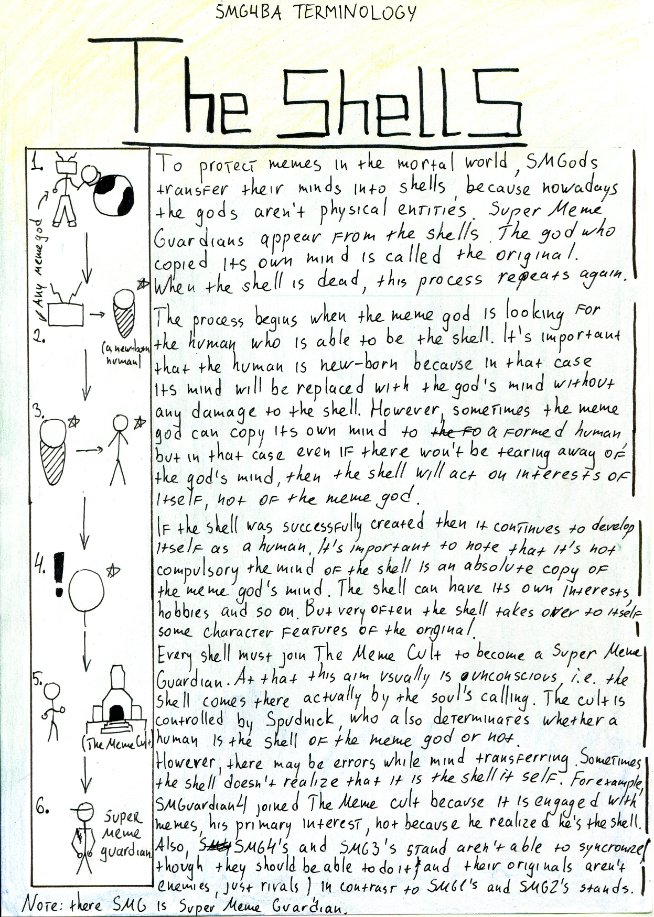 SMG4BA TERMINOLOGY
The Shells
1.
Any meme god
2.
(a new-born
human)
3.
4.
5.
(The Meme Cult)
6.
SUPER
MEME
guardian
To protect memes in the mortal world, SMGods
transfer their minds into shells, because nowadays
the gods aren't physical entities. Super Meme
Guardians appear from the shells. The god who
copied its own mind is called the original.
When the shell is dead, this process repeats again.
The process begins when the meme god is looking for
the human who is able to be the shell. It's important
that the human is new-born because in that case
its mind will be replaced with the god's mind without
any damage to the shell. However, sometimes the meme
god can copy its own mind to the fo a formed human
but in that case even if there won't be tearing away of
the god's mind, then the shell will act on interests of
itself, not of the meme god.
If the shell was successfully created then it continues to develop
itself as a human. It's important to note that it's not
compulsory the mind of the shell is an absolute copy of
the meme god's mind. The shell can have its own interests,
hobbies and so on. But very often the shell takes over to itself
some character features of the original.
Every shell must join The Meme Cult to become a Super Meme
Guardian. At that this aim usually is unconscious, i.e. the
shell comes there actually by the soul's calling. The cult is
controlled by Spudnick, who also determinates whether a
human is the shell of the meme god or not.
However, there may be errors while mind transferring. Sometimes
the shell doesn't realize that it is the shell it self. For example,
SMGuardian4 joined The Meme cult because it is engaged with
memes, his primary interest, not because he realized he's the shell.
Also, SMG4's and SMG3's stand aren't able to syncronize
though they should be able to do it (and their originals aren't
enemies, just rivals) in contrast to SMG1's and SMG2's stands.
Note: there SMG is Super Meme Guardian.